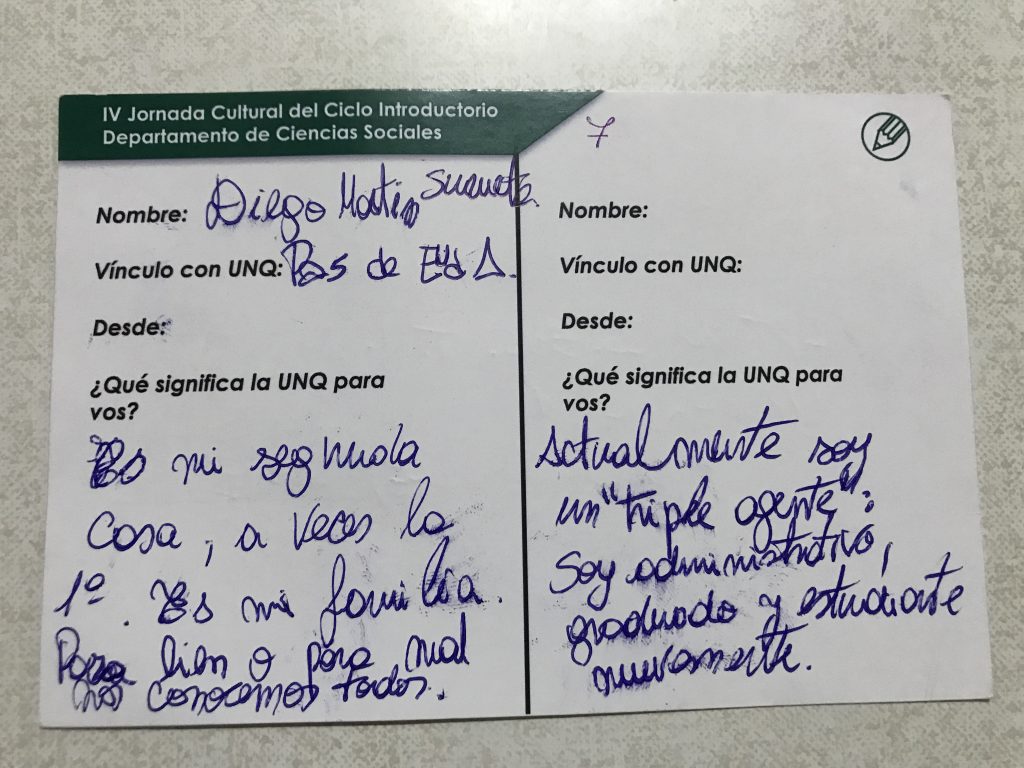 IV Jornada Cultural del Ciclo Introductorio
Departamento de Ciencias Sociales
Nombre: Diego Martín
Vínculo con UNQ: Pas de
Desde:
¿Qué significa la UNQ para
vos?
Es mi segunda
casa, a veces la
1º. Es mi familia.
Para bien o para mal
nos conocemos todos.
7
Nombre:
Vínculo con UNQ:
Desde:
¿Qué significa la UNQ para
vos?
Actualmente soy
un "triple agente":
Soy administrativo,
graduado y estudiante
nuevamente.